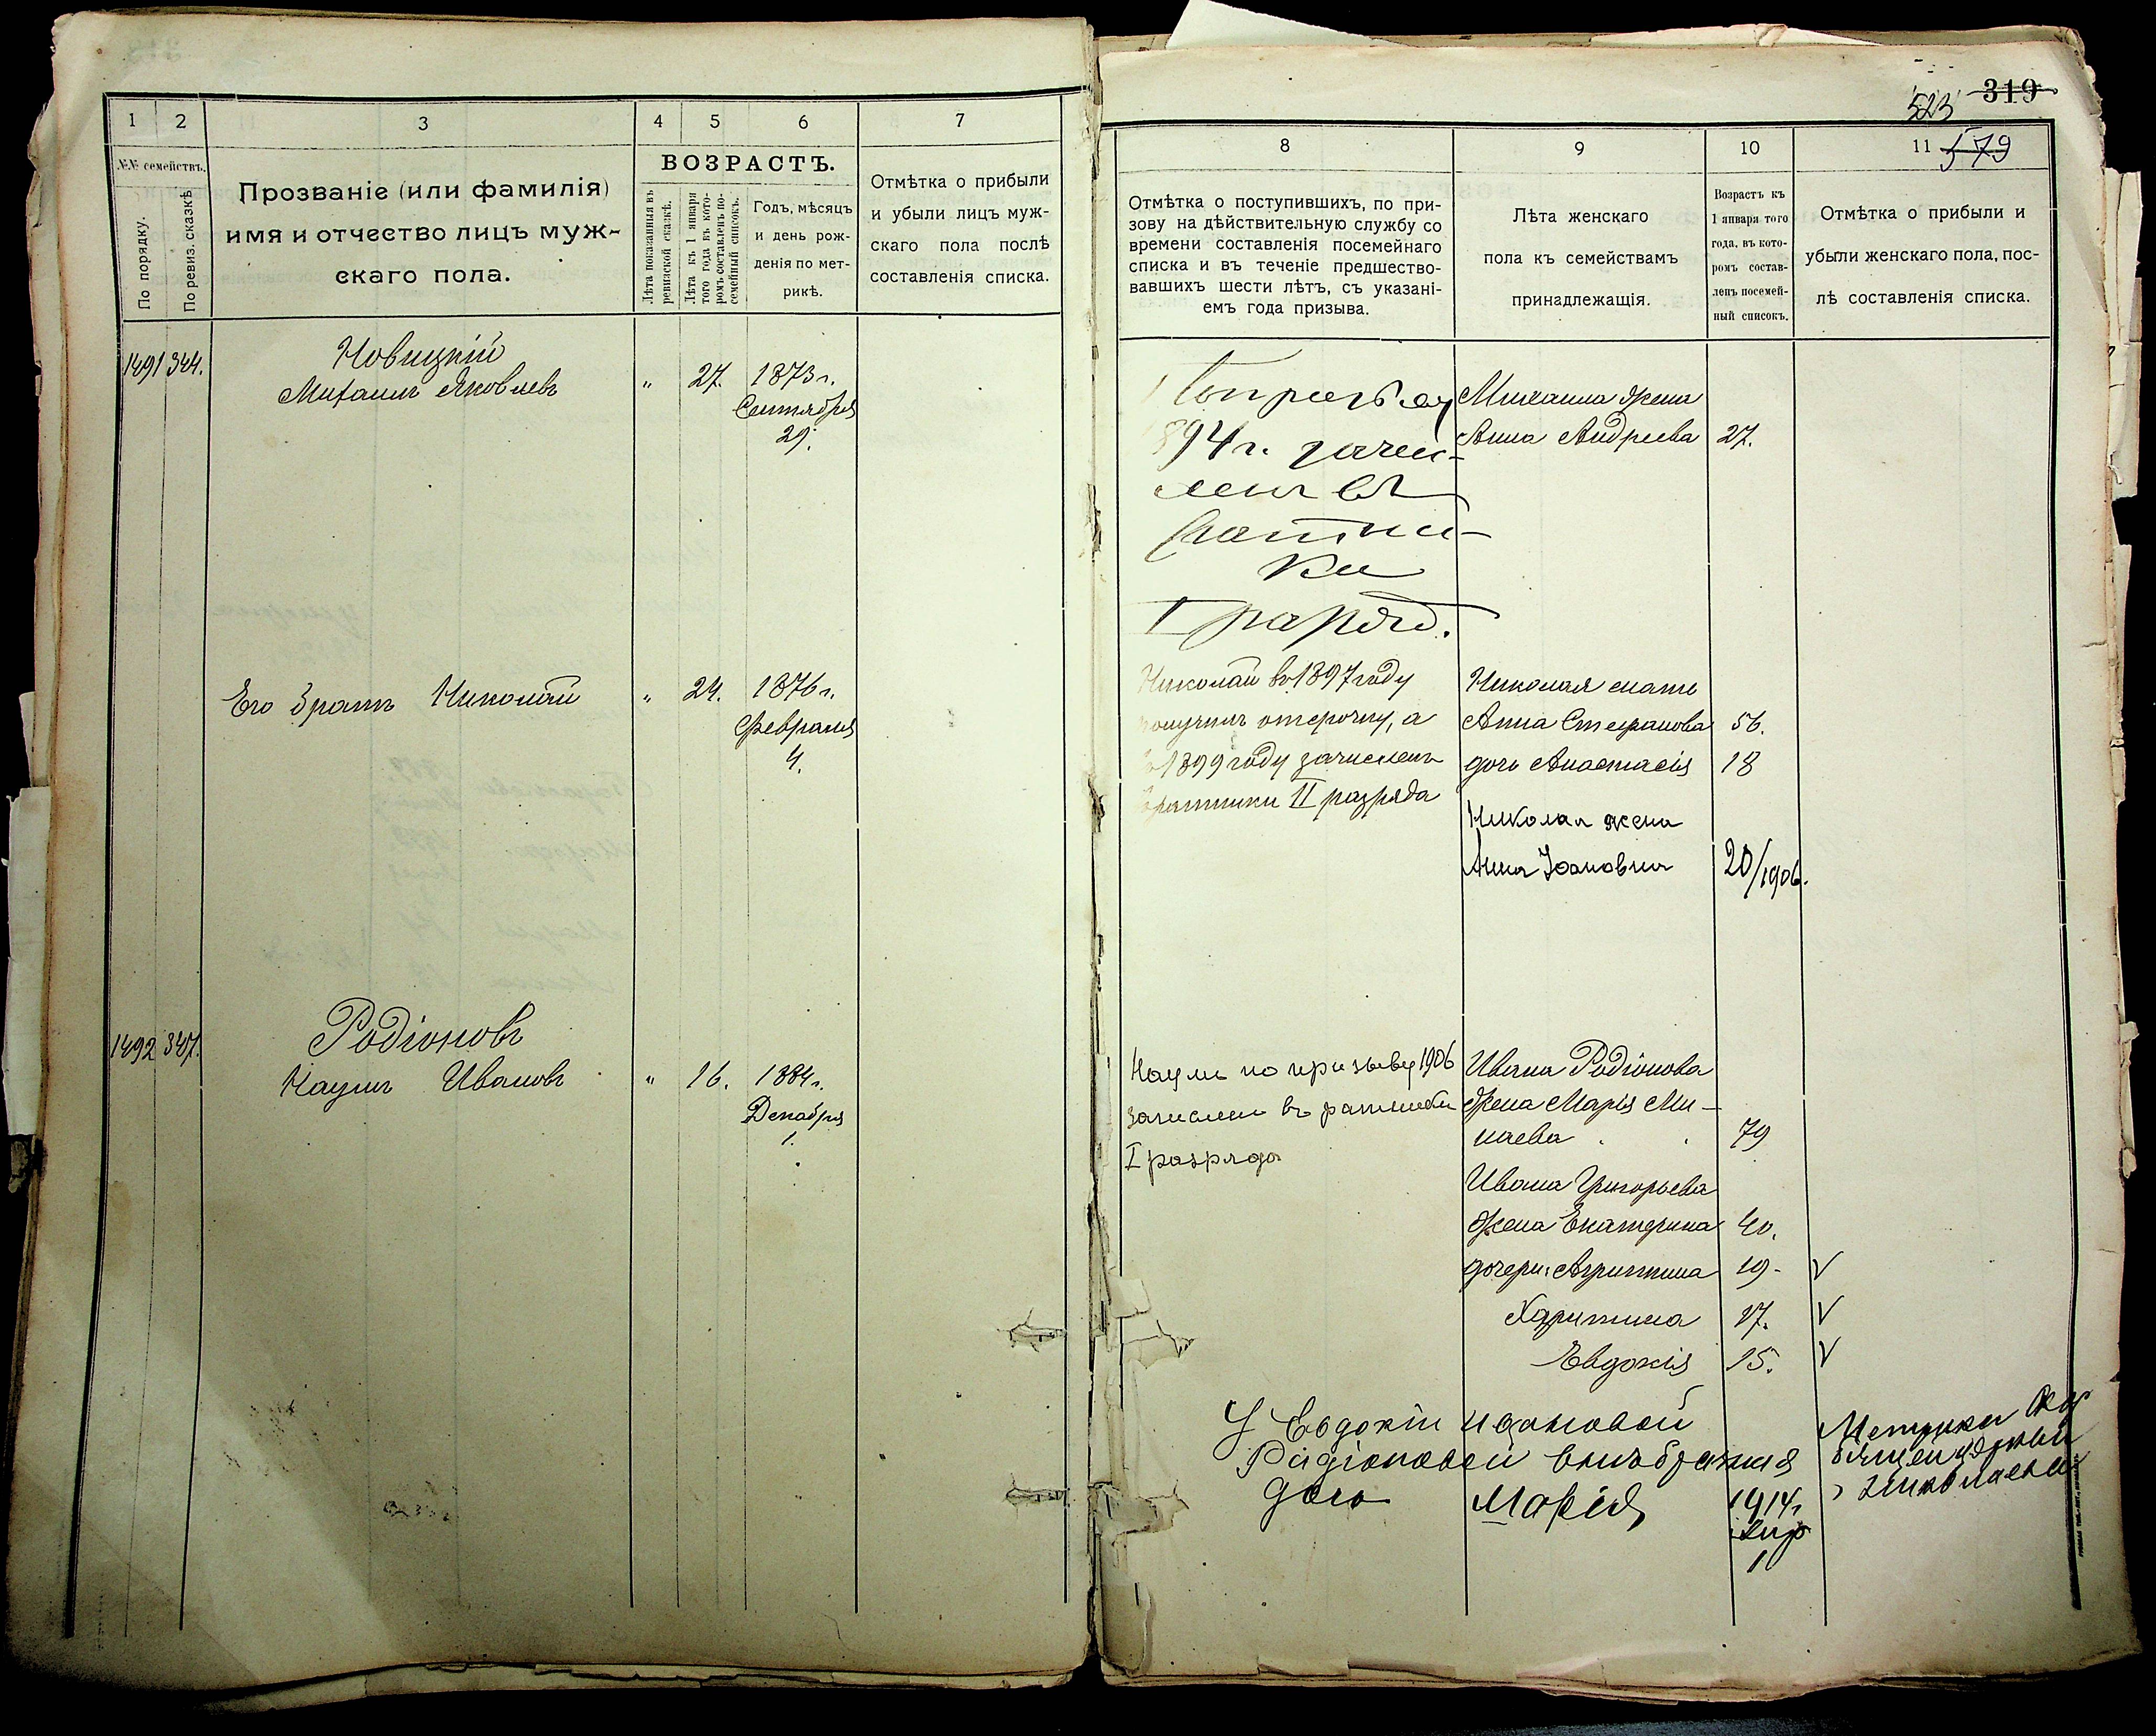 1
2
3
4
5
6
7
№№ семействъ.
По порядку.
По ревиз. сказкѣ
Прозваніе (или фамилія)
имя и отчество лицъ муж-
скаго пола.
ВОЗРАСТЪ.
Лѣта показанныя въ
ревизской сказкѣ.
Лѣта къ 1 января
того года въ кото-
ромъ составленъ по-
семейный списокъ.
Годъ, мѣсяцъ
и день рож-
денія по мет-
рикѣ.
Отмѣтка о прибыли
и убыли лицъ муж-
скаго пола послѣ
составленія списка.
1491 344.
Новицкій
Михаилъ Яковлевъ
" 27. 1873 г.
Сентября
29.
Его братъ Николай " 24. 1876 г.
Февраля
4.
1492 347.
Родіоновъ
Наумъ Ивановъ " 16. 1884 г.
Декабря
1.
319
523
579
8
9
10
11
Отмѣтка о поступившихъ, по при-
зову на дѣйствительную службу со
времени составленія посемейнаго
списка и въ теченіе предшество-
вавшихъ шести лѣтъ, съ указані-
емъ года призыва.
Лѣта женскаго
пола къ семействамъ
принадлежащія.
Возрастъ къ
1 января того
года, въ кото-
ромъ состав-
ленъ посемей-
ный списокъ.
Отмѣтка о прибыли и
убыли женскаго пола, пос-
лѣ составленія списка.
894 г. зачис-
ленъ въ
ратни-
ки
I разряд.
Михаила жена
Анна Андреева 27.
Николай въ 1897 году
получилъ отсрочку, а
въ 1899 году зачисленъ
въ ратники II разряда
Николая мать
Анна Стефанова 56.
дочь Анастасія 18
Николая жена
Анна Іоановна 20/1906.
Наумъ по призыву 1906
зачисленъ въ ратники
I разряда
Ивана Родіонова
жена Марія Ми-
наева 79
Ивана Григорьева
жена Екатерина 40.
дочери: Агрипина 19. V
Харитина 17. V
Евдокія 15. V
У Евдокіи Ивановой
Родіоновой внѣбрачная
дочь Марія 1914 г.
1